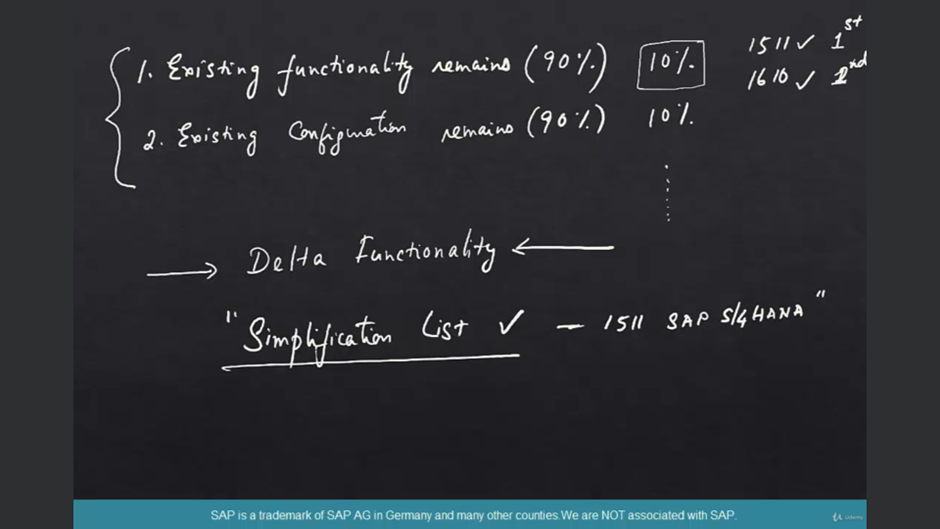 1. Existing functionality remains (90%) 10% 1511 ✓ 1st
2. Existing Configuration remains (90%) 10% 1610 ✓ 2nd
→ Delta Functionality ←
"Simplification List ✓ — 1511 SAP S/4 HANA"
SAP is a trademark of SAP AG in Germany and many other counties.We are NOT associated with SAP.
Udemy